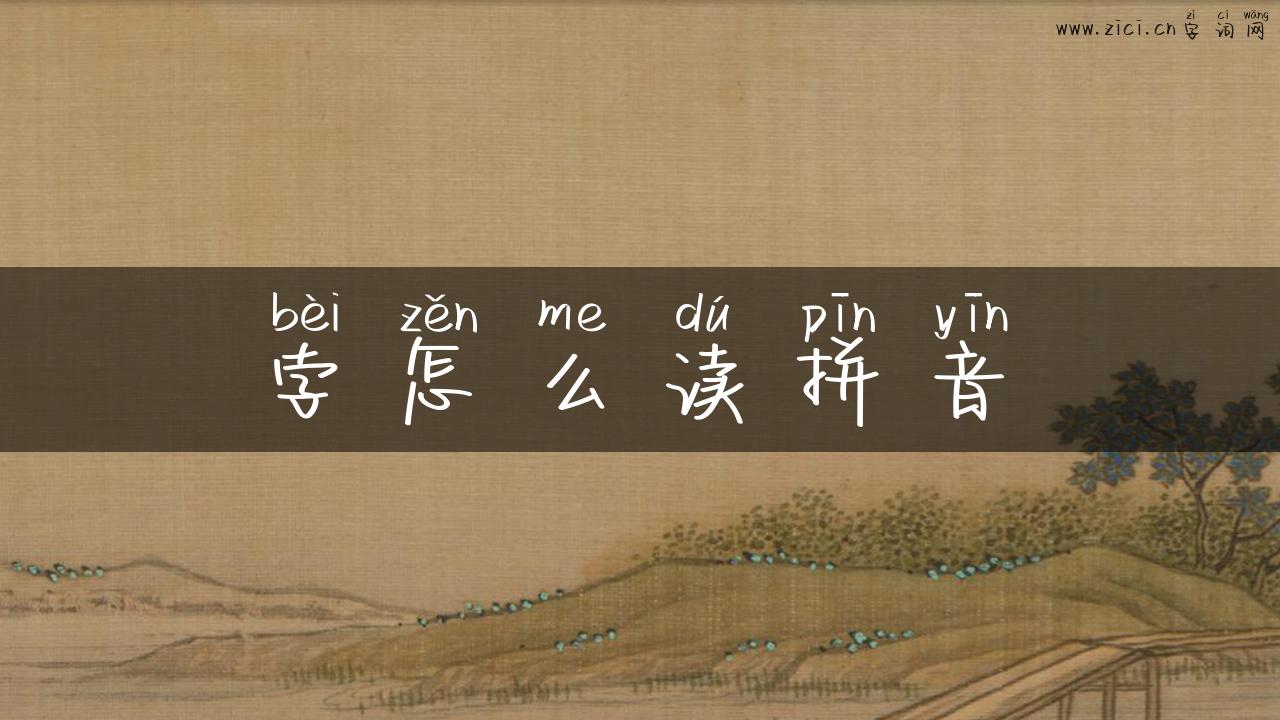 zì cí wǎng
www.zici.cn字词网
bèi zěn me dú pīn yīn
孛怎么读拼音